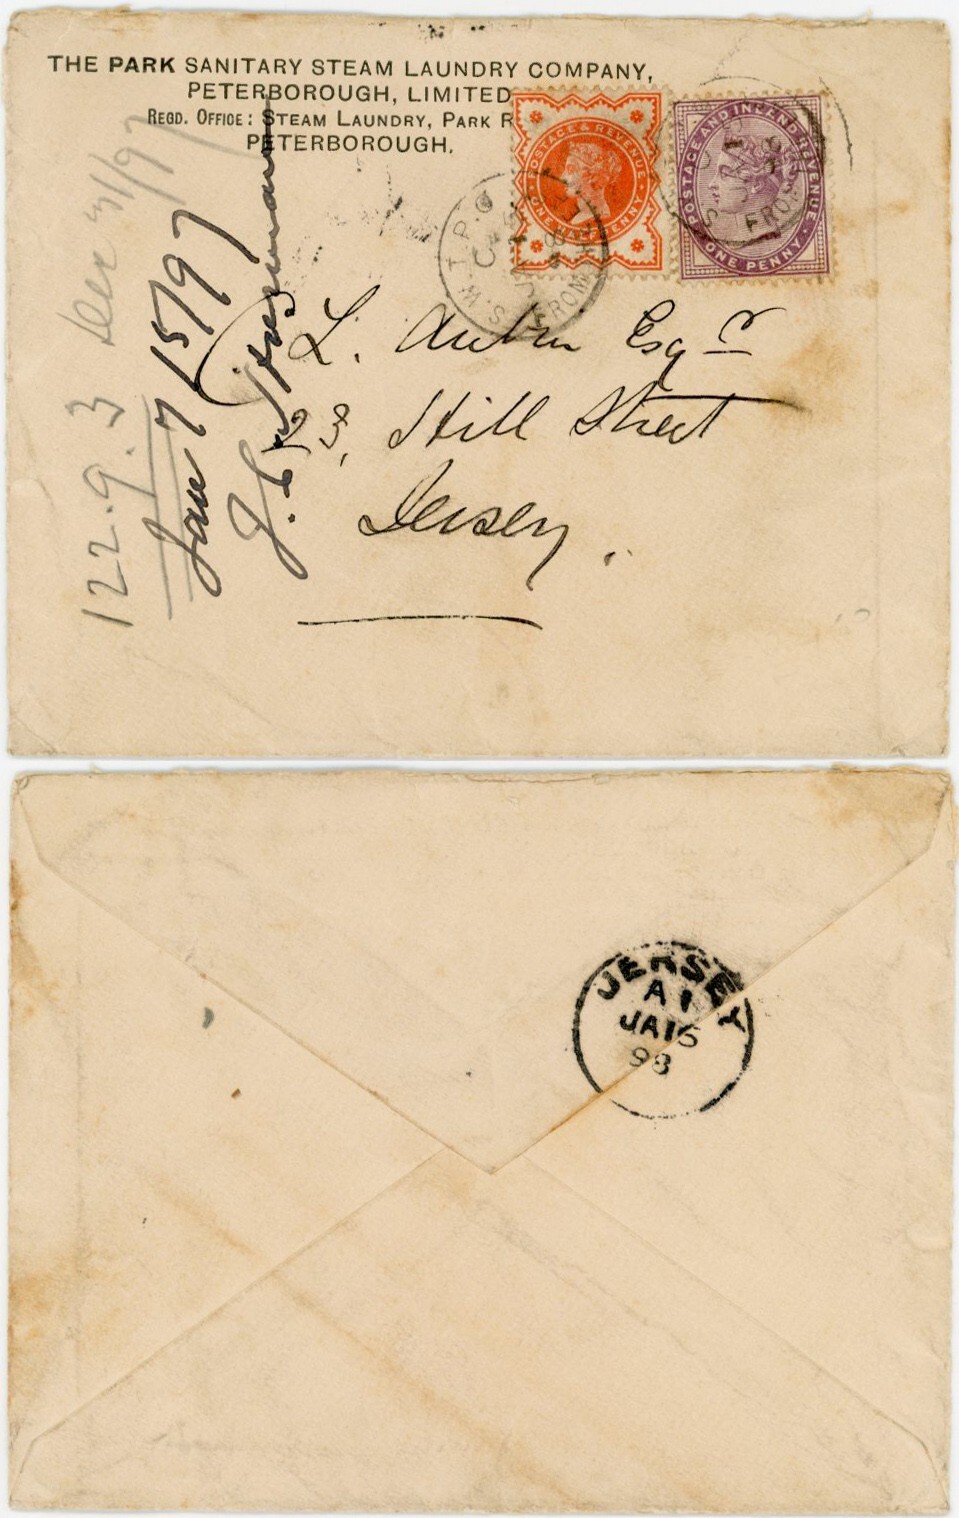 THE PARK SANITARY STEAM LAUNDRY COMPANY,
PETERBOROUGH, LIMITED
REGD. OFFICE: STEAM LAUNDRY, PARK R
PETERBOROUGH.
POSTAGE & REVENUE
ONE HALF PENNY
POSTAGE AND INLAND REVENUE
ONE PENNY
S.W.T.P.O
FROM
FROM
L. Esqr
23, Hill Street
Jersey.
122.9.3 Dec 31/97
Jan 7 15/97
JERSEY
A1
JA15
98